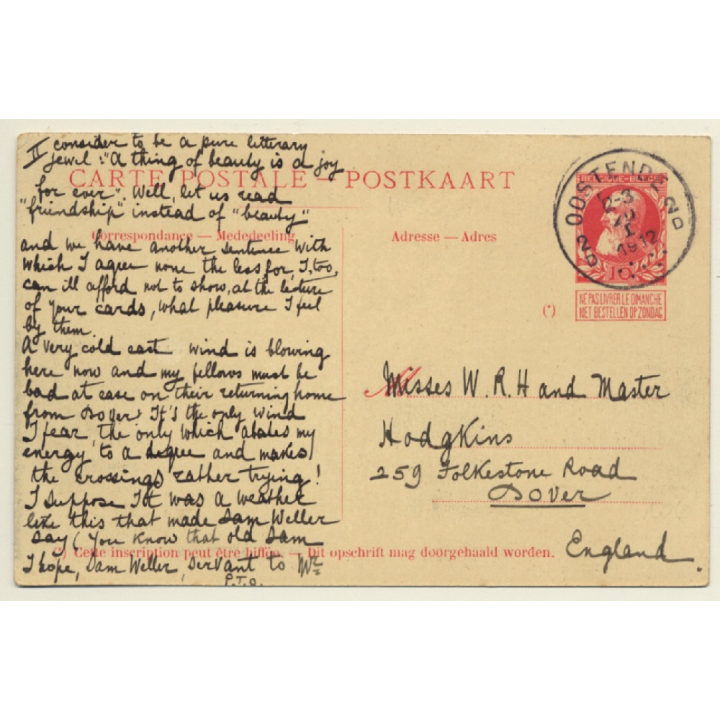 II consider to be a pure litterary
jewel: "A thing of beauty is a joy
for ever." Well, let us read
"friendship" instead of "beauty"
and we have another sentence with
which I agree none the less for, I, too,
can ill afford not to show, at the lecture
of your cards, what pleasure I feel
by them.
A very cold east wind is blowing
here now and my fellows must be
bad at ease on their returning home
from Dover. It's the only wind
I fear, the only which abates my
energy to a degree and makes
the crossings rather trying!
I suppose it was a weather
like this that made Sam Weller
say (You know that old Sam
I hope, Sam Weller, servant to Mr
P.T.O.
CARTE POSTALE - POSTKAART
Correspondance — Mededeeling
Adresse — Adres
OOSTENDE
12-3
1912
10
NE PAS LIVRER LE DIMANCHE
NIET BESTELLEN OP ZONDAG
(*)
M
Misses W. R. H and Master
Hodgkins
259 Folkestone Road
Dover
England.
(*) Cette inscription peut être biffée. — Dit opschrift mag doorgehaald worden.